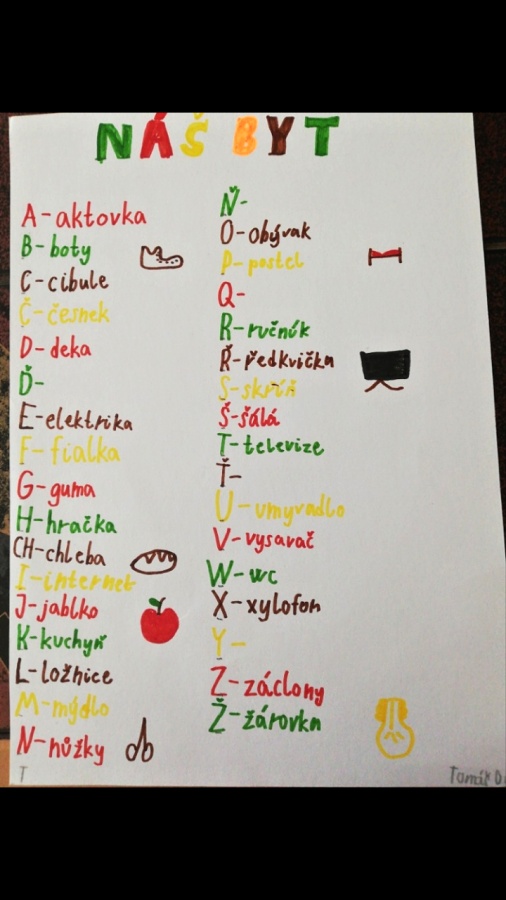 NÁŠ BYT
A-aktovka
B-boty
C-cibule
Č-česnek
D-deka
Ď-
E-elektrika
F-fialka
G-guma
H-hračka
CH-chleba
I-internet
J-jablko
K-kuchyň
L-ložnice
M-mýdlo
N-nůžky
T
Ň-
O-obývak
P-postel
Q-
R-ručník
Ř-ředkvička
S-skříň
Š-šálá
T-televize
Ť-
U-umyvadlo
V-vysavač
W-wc
X-xylofon
Y-
Z-záclony
Ž-žárovka
Tomáš D.